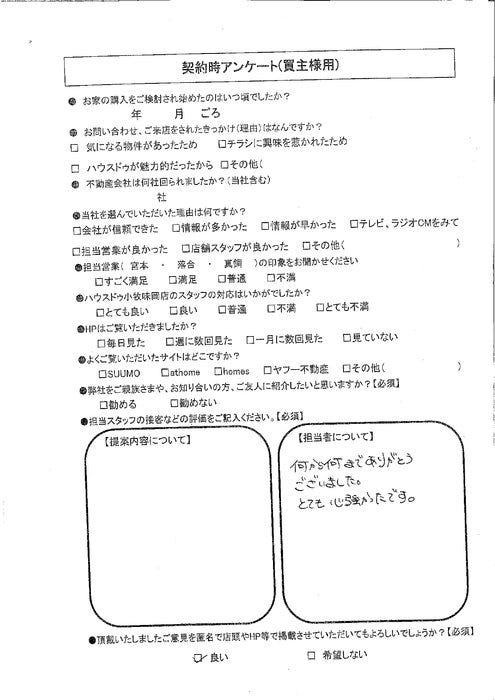 契約時アンケート(買主様用)
●お家の購入をご検討され始めたのはいつ頃でしたか？
年 月 ごろ
●お問い合わせ、ご来店をされたきっかけ(理由)はなんですか？
□ 気になる物件があったため □チラシに興味を惹かれたため
□ ハウスドゥが魅力的だったから □その他(
●不動産会社は何社回られましたか？(当社含む)
社
●当社を選んでいただいた理由は何ですか？
□会社が信頼できた □情報が多かった □情報が早かった □テレビ、ラジオCMをみて
□担当営業が良かった □店舗スタッフが良かった □その他( )
●担当営業( 宮本 ・ 落合 ・ )の印象をお聞かせください
□すごく満足 □満足 □普通 □不満
●ハウスドゥ小牧味岡店のスタッフの対応はいかがでしたか？
□とても良い □良い □普通 □不満 □とても不満
●HPはご覧いただきましたか？
□毎日見た □週に数回見た □一月に数回見た □見ていない
●よくご覧いただいたサイトはどこですか？
□SUUMO □athome □homes □ヤフー不動産 □その他( )
●弊社をご親族さまや、お知り合いの方、ご友人に紹介したいと思いますか？【必須】
□勧める □勧めない
●担当スタッフの接客などの評価をご記入ください。【必須】
【提案内容について】
【担当者について】
何から何までありがとう
ございました。
とても心強かったです。
●頂戴いたしましたご意見を匿名で店頭やHP等で掲載させていただいてもよろしいでしょうか？【必須】
☑ 良い □ 希望しない